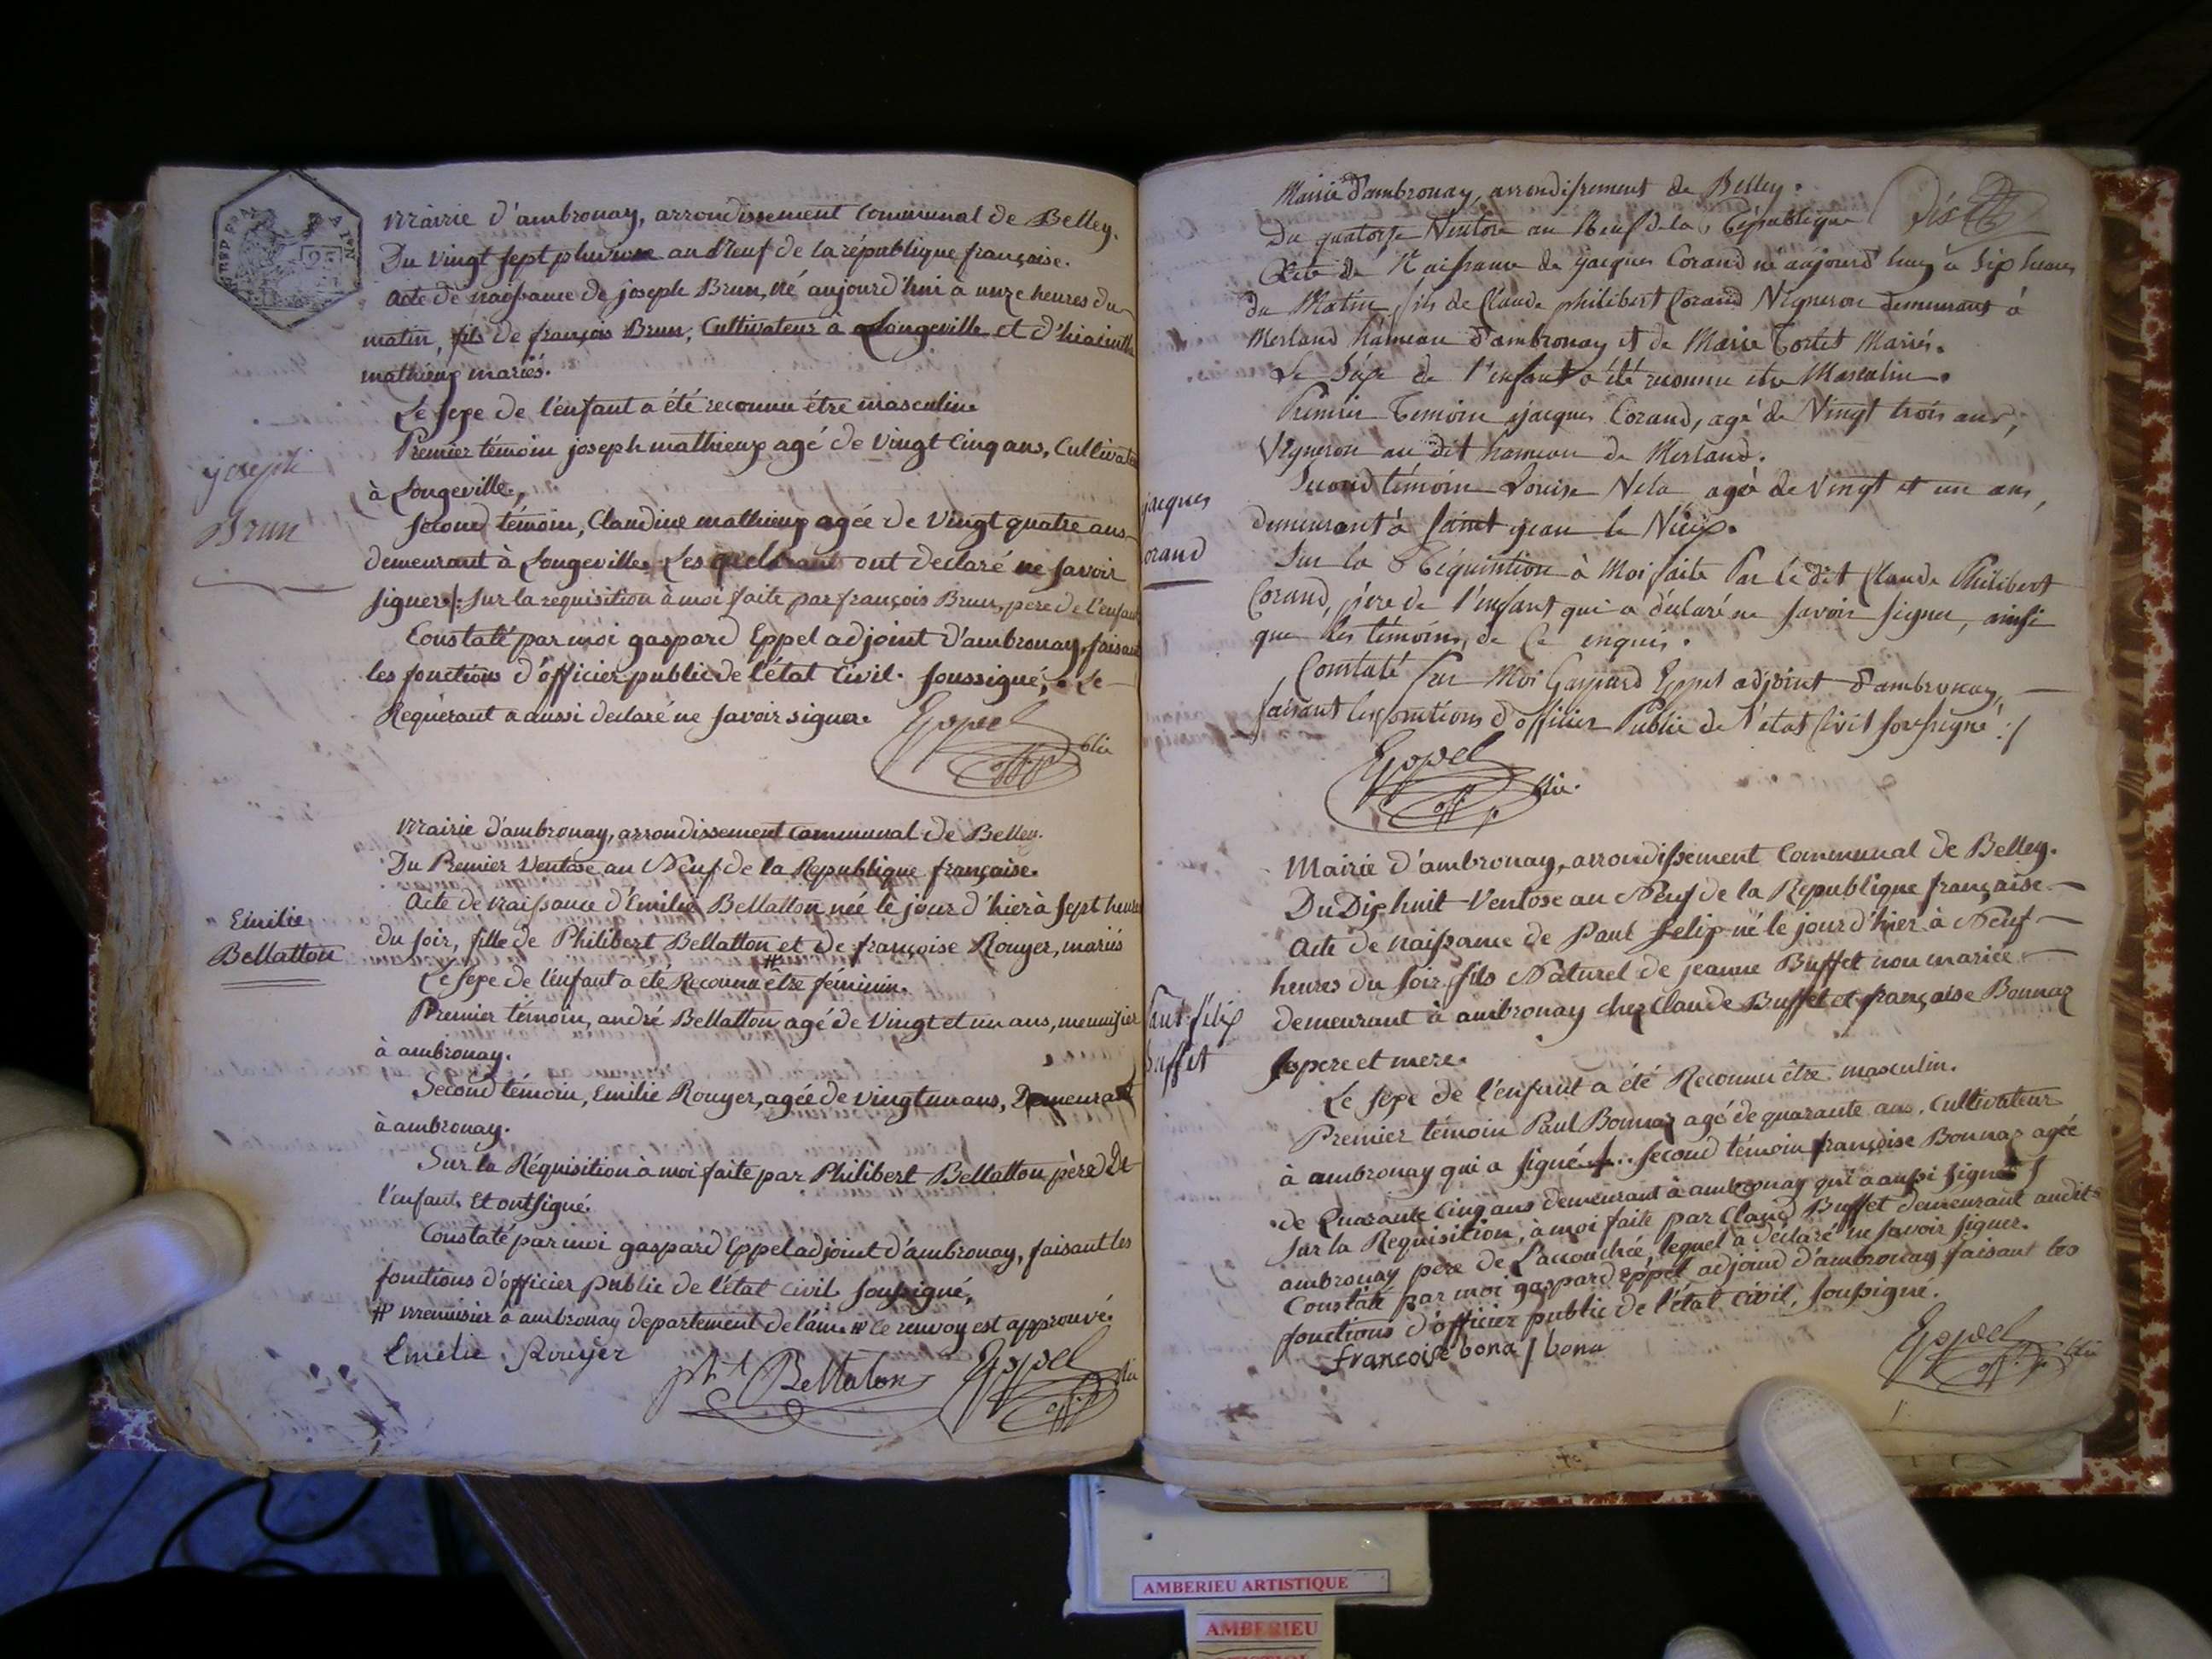 joseph
Brun
Mairie d'ambronay, arrondissement Communal de Belley.
Du vingt sept pluviose an Neuf de la république française.
Acte de naissance de joseph Brun, né aujourd'hui a onze heures du
matin, fils de françois Brun, Cultivateur à Longeville et d'hiacinthe
mathieux mariés.
Le sexe de l'enfant a été reconnu être masculin
Premier témoin joseph mathieux agé de vingt cinq ans, Cultivateur
à Longeville,
Second témoin, Claudine mathieux agée de vingt quatre ans
demeurant à Longeville. Les ont declaré ne savoir
signer /: sur la requisition à moi faite par françois Brun, pere de l'enfant
Constaté par moi gaspard Eppel adjoint d'ambronay, faisant
les fonctions d'officier public de l'état Civil. soussigné, Le
Requérant a aussi declaré ne savoir signer.
Eppel
off. p. blic
Emilie
Bellatton
Mairie d'ambronay, arrondissement communal de Belley.
Du Premier Ventose an Neuf de la Republique française.
Acte de naissance d'Emilie Bellatton née le jour d'hier à sept heures
du soir, fille de Philibert Bellatton et de françoise Rouyer, mariés
#
Le sexe de l'enfant a été Reconnu être féminin.
Premier témoin, andré Bellatton agé de vingt et un ans, menuisier
à ambronay.
Second témoin, Emilie Rouyer, agée de vingt un ans, Demeurant
à ambronay.
Sur la Réquisition à moi faite par Philibert Bellatton père De
l'enfant. Et ont signé.
Constaté par moi gaspard Eppel adjoint d'ambronay, faisant les
fonctions d'officier public de l'état civil soussigné,
# menuisier à ambronay departement de l'ain # ce renvoy est approuvé.
Emelie Rouyer
pht Bellaton
Eppel
off. p. blic
Mairie d'ambronay, arrondissement de Belley.
Du quatorze Ventose an Neuf de la République
Dix
Acte de Naissance de jacques Corand né aujourd'huy à six heures
du Matin, fils de Claude philibert Corand Vigneron demeurant à
Merland hameau d'ambronay et de Marie Tortet Mariés.
Le Sexe de l'enfant a été reconnu etre Masculin.
Premier Temoin jacques Corand, agé de Vingt trois ans,
Vigneron au dit hameau de Merland.
jacques
orand
Second témoin Louise Vela agée de Vingt et un ans,
demeurant à Saint jean le Vieux.
Sur la Réquisition à Moi faite Par le dit Claude Philibert
Corand, père de l'enfant qui a déclaré ne savoir signer, ainsi
que les témoins, de Ce enquis.
Constaté Par Moi Gaspard Eppel adjoint d'ambronay,
faisant les fonctions d'officier Public de l'état Civil soussigné :/
Eppel
off. p. blic.
Mairie d'ambronay, arrondissement Communal de Belley.
Du Dix huit Ventose an Neuf de la Republique française.
Acte de naissance de Paul felix né le jour d'hier à Neuf
heures du soir, fils Naturel de jeanne Buffet non mariée
paul felix
buffet
demeurant à ambronay chez Claude Buffet et françoise Bonnaz
ses pere et mere.
Le sexe de l'enfant a été Reconnu être masculin.
Premier témoin Paul Bonnaz agé de quarante ans, Cultivateur
à ambronay qui a signé. /: second témoin françoise Bonnaz agée
de Quarante Cinq ans demeurant à ambronay qui a aussi signé
sur la Requisition, à moi faite par Claud Buffet demeurant audit
ambronay pere de l'accouchée, lequel a déclaré ne savoir signer.
Constaté par moi gaspard Eppel adjoint d'ambronay faisant les
fonctions d'officier public de l'état civil, soussigné.
francoise bona / bona
Eppel
off. p. blic
AMBERIEU ARTISTIQUE
AMBERIEU